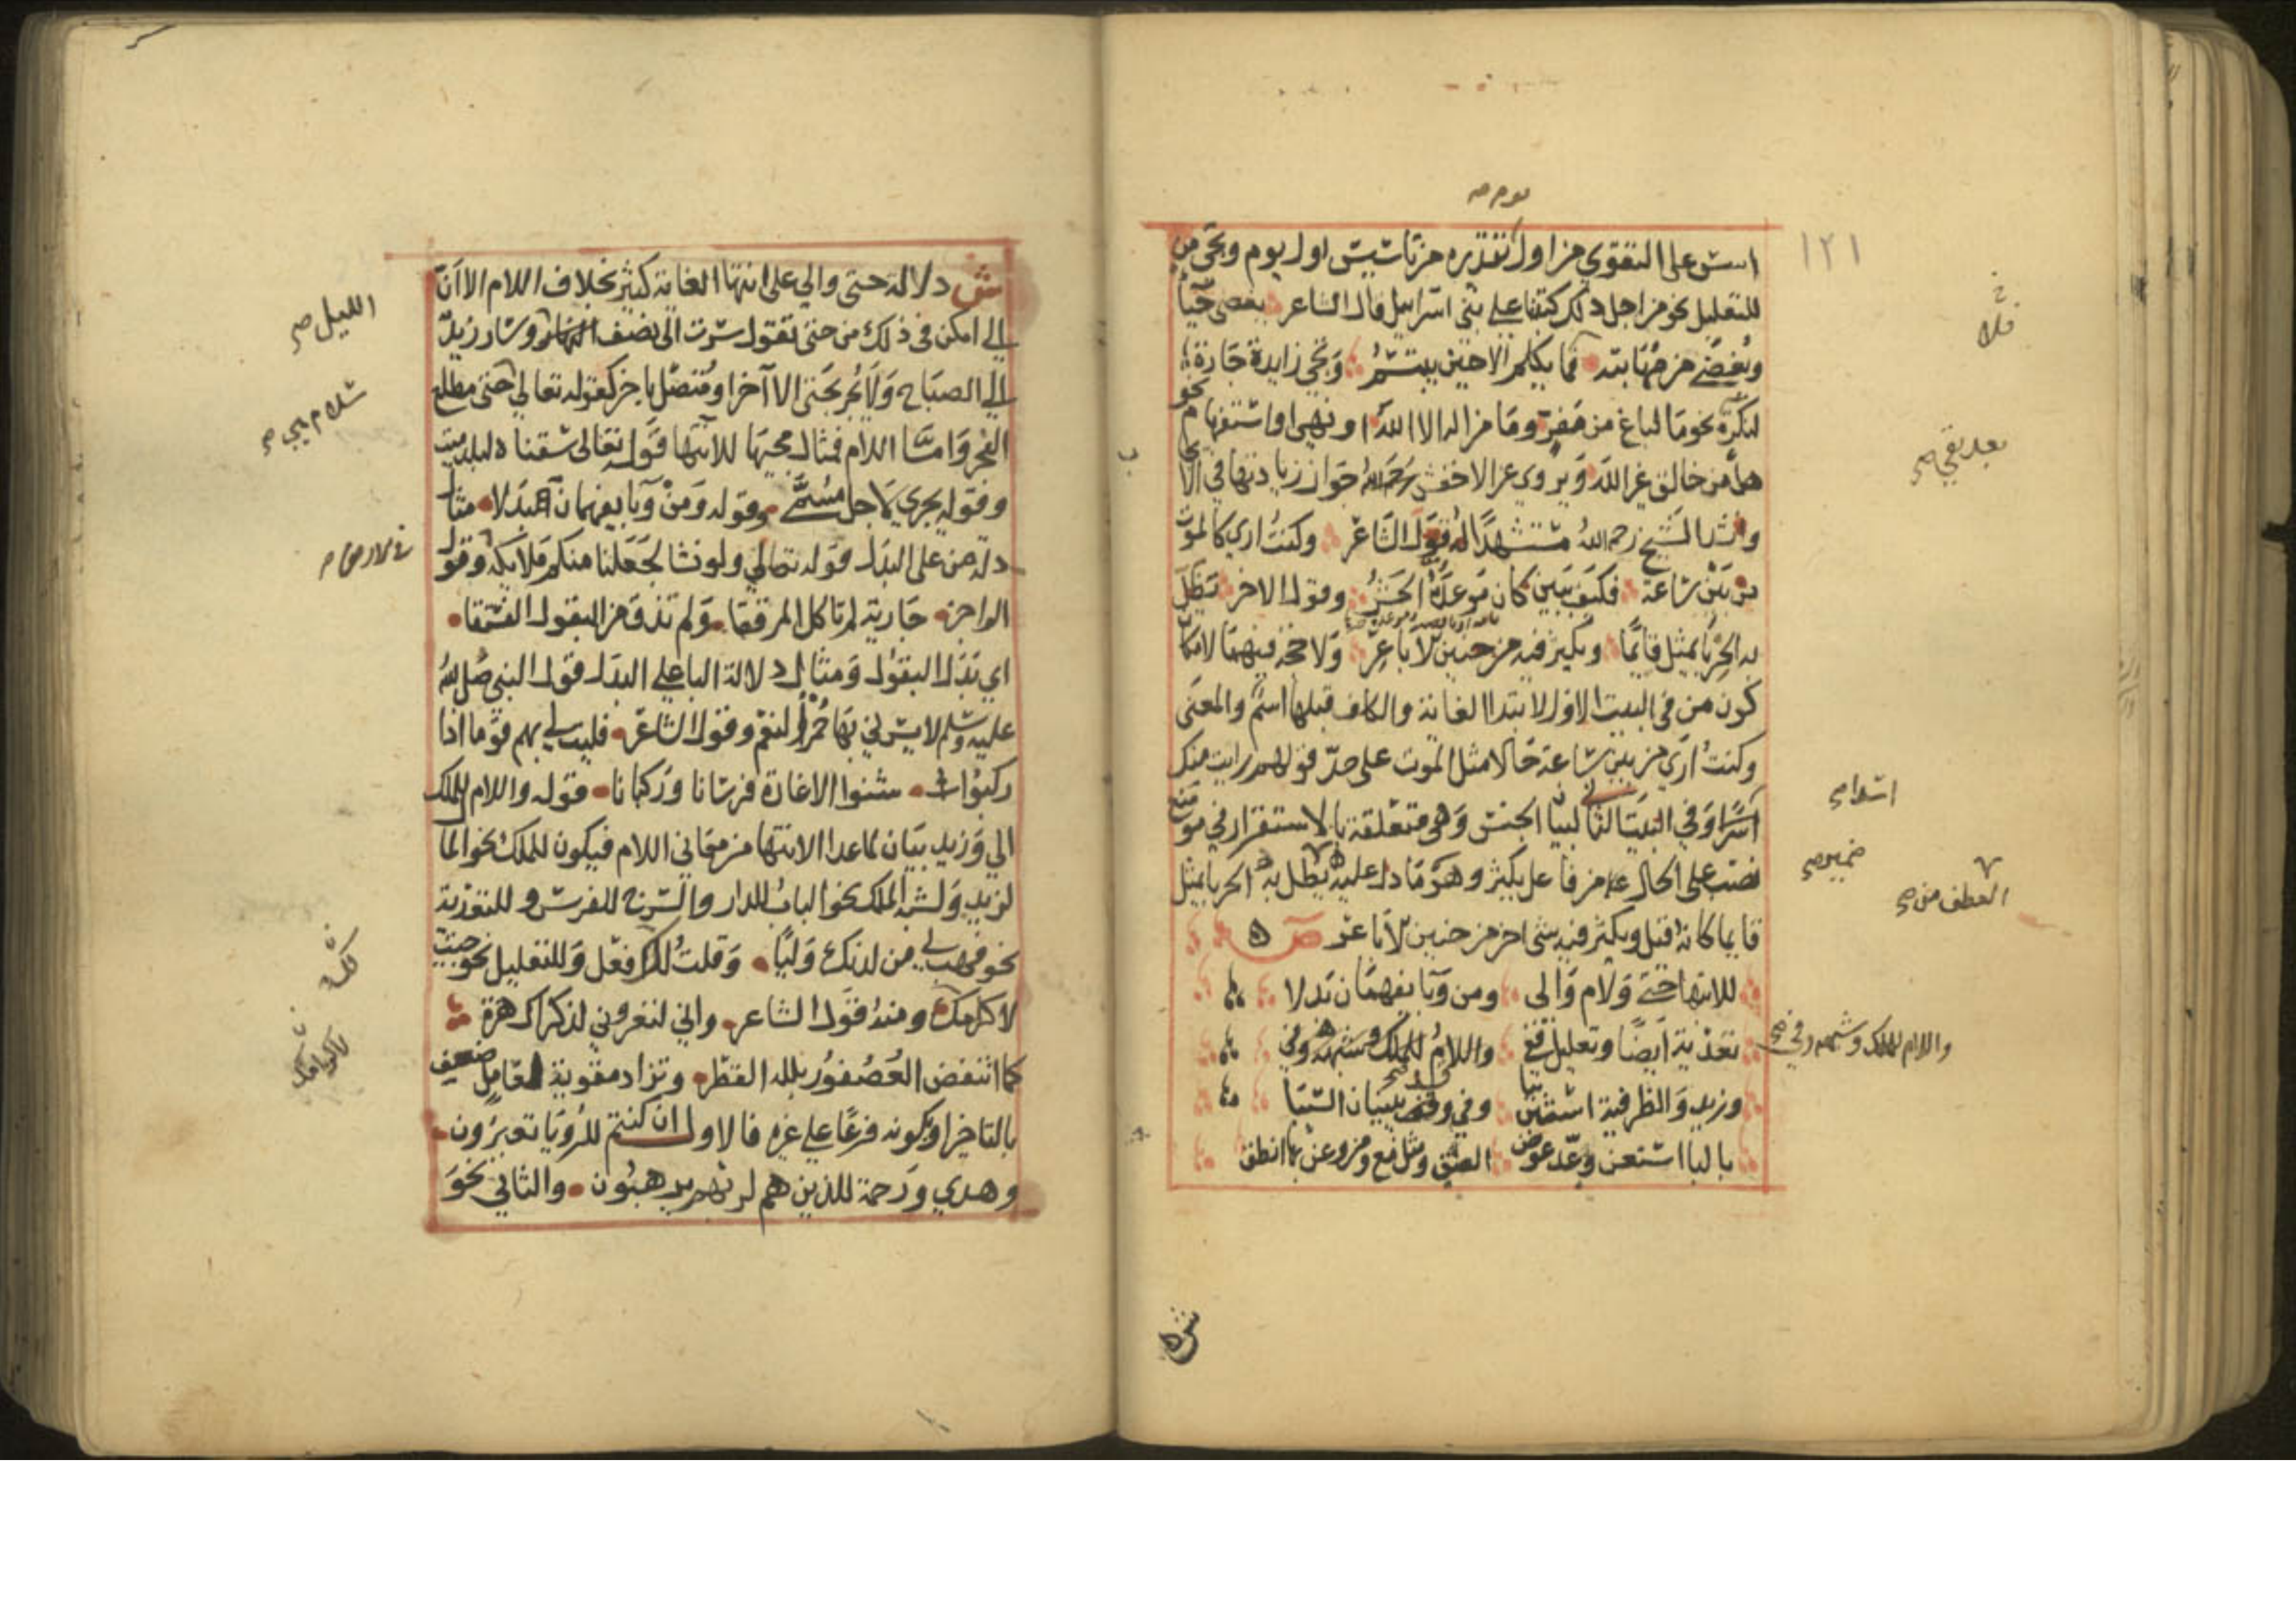 اسس على التقوى من اول تقديره من تاسيس اول يوم وتجى من
للتعليل نحو من اجل ذلك كتبنا على بنى اسرايل قال الشاعر يغضى حيآ
ويغضى من مهابته فما يكلم الا حين يبتسم وتجى زايدة جارة
لنكرة نحو ما لباغ من مفر وما من اله الا الله او نهى او استفهام نحو
هل من خالق غير الله ويروى عن الاخفش رحمه الله جواز زيادتها فى
وانشد الشيخ رحمه الله مستشهدا له قول الشاعر وكنت ارى كالموت
من بين ساعة فكيف ببين كان موعده الحشر وقول الاخر يظل
به الحربا يمثل قايما ويكثر فيه من حنين الاباعر ولا حجة فيهما لامكا
كون من فى البيت الاول لابتدا الغاية والكاف قبلها اسم والمعنى
وكنت ارى من بين ساعة حالا مثل الموت على حد قولهم رايت منك
اسدا وفى البيت الثانى لبيان الجنس وهى متعلقة بالاستقرار فى موضع
نصب على الحال من فاعل يكثر وهو ما دل عليه يظل به الحربا يمثل
قايما كانه قيل ويكثر فيه شى اخر من حنين الاباعر ص
للانتها حتى ولام والى ومن وبا يفهمان بدلا
واللام للملك وشبهه وفى تعدية ايضا وتعليل قفى
وزيد والظرفية استبن ببا وفى وقد يبينان السببا
بالبا استعن وعد عوض الصق ومثل مع ومن وعن بها انطق
قلا
بعد بقى صح
اسدا صح
ضمير صح
العطف من صح
واللام للملك وشبهه وفى صح
١٢١
ش دلالة حتى والى على انتها الغاية كثير بخلاف اللام الا ان
الى امكن فى ذلك من حتى تقول سرت الى نصف النهار وسار زيد
الى الصباح ولا يجر بحتى الا آخرا او متصل باخر كقوله تعالى حتى مطلع
الفجر واما اللام فمثال مجيها للانتها قوله تعالى سقناه لبلد ميت
وقوله يجرى لاجل مسمى وقوله ومن وبا يفهمان بدلا مثال
دلة من على البدل قوله تعالى ولو نشا لجعلنا منكم ملايكة وقول
الراجز جارية لم تاكل المرققا ولم تذق من البقول الفستقا
اى بدل البقول ومثال دلالة البا على البدل قول النبى صلى الله
عليه وسلم لا يسرنى بها حمر النعم وقول الشاعر فليت لى بهم قوما اذا
ركبوا شنوا الاغارة فرسانا وركبانا قوله واللام للملك
الى وزيد بيان لما عدا الانتها من معانى اللام فيكون للملك نحو المال
لزيد ولشبه الملك نحو الباب للدار والسرج للفرس وللتعدية
نحو فهب لى من لدنك وليا وقلت لك افعل وللتعليل نحو جيت
لاكرمك ومنه قول الشاعر وانى لتعرونى لذكراك هزة
كما انتفض العصفور بلله القطر وتزاد مقوية لعامل ضعيف
بالتاخير او بكونه فرعا على غيره فالاول ان كنتم للرويا تعبرون
وهدى ورحمة للذين هم لربهم يرهبون والثانى نحو
الليل صح
سلام هى صح
فى الارض